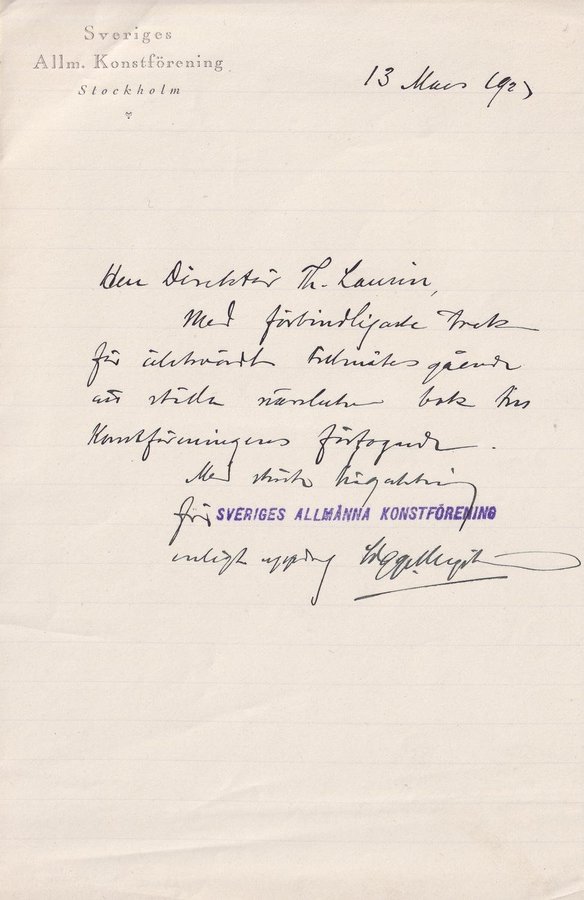 Sveriges
Allm. Konstförening
Stockholm
13 Mars 1927
Herr Direktör Th. Laurin,
Med förbindligaste tack
för älskvärdt tillmötesgående
att ställa närslutna bok till
Konstföreningens förfogande.
Med största högaktning
för SVERIGES ALLMÄNNA KONSTFÖRENING
enligt uppdrag